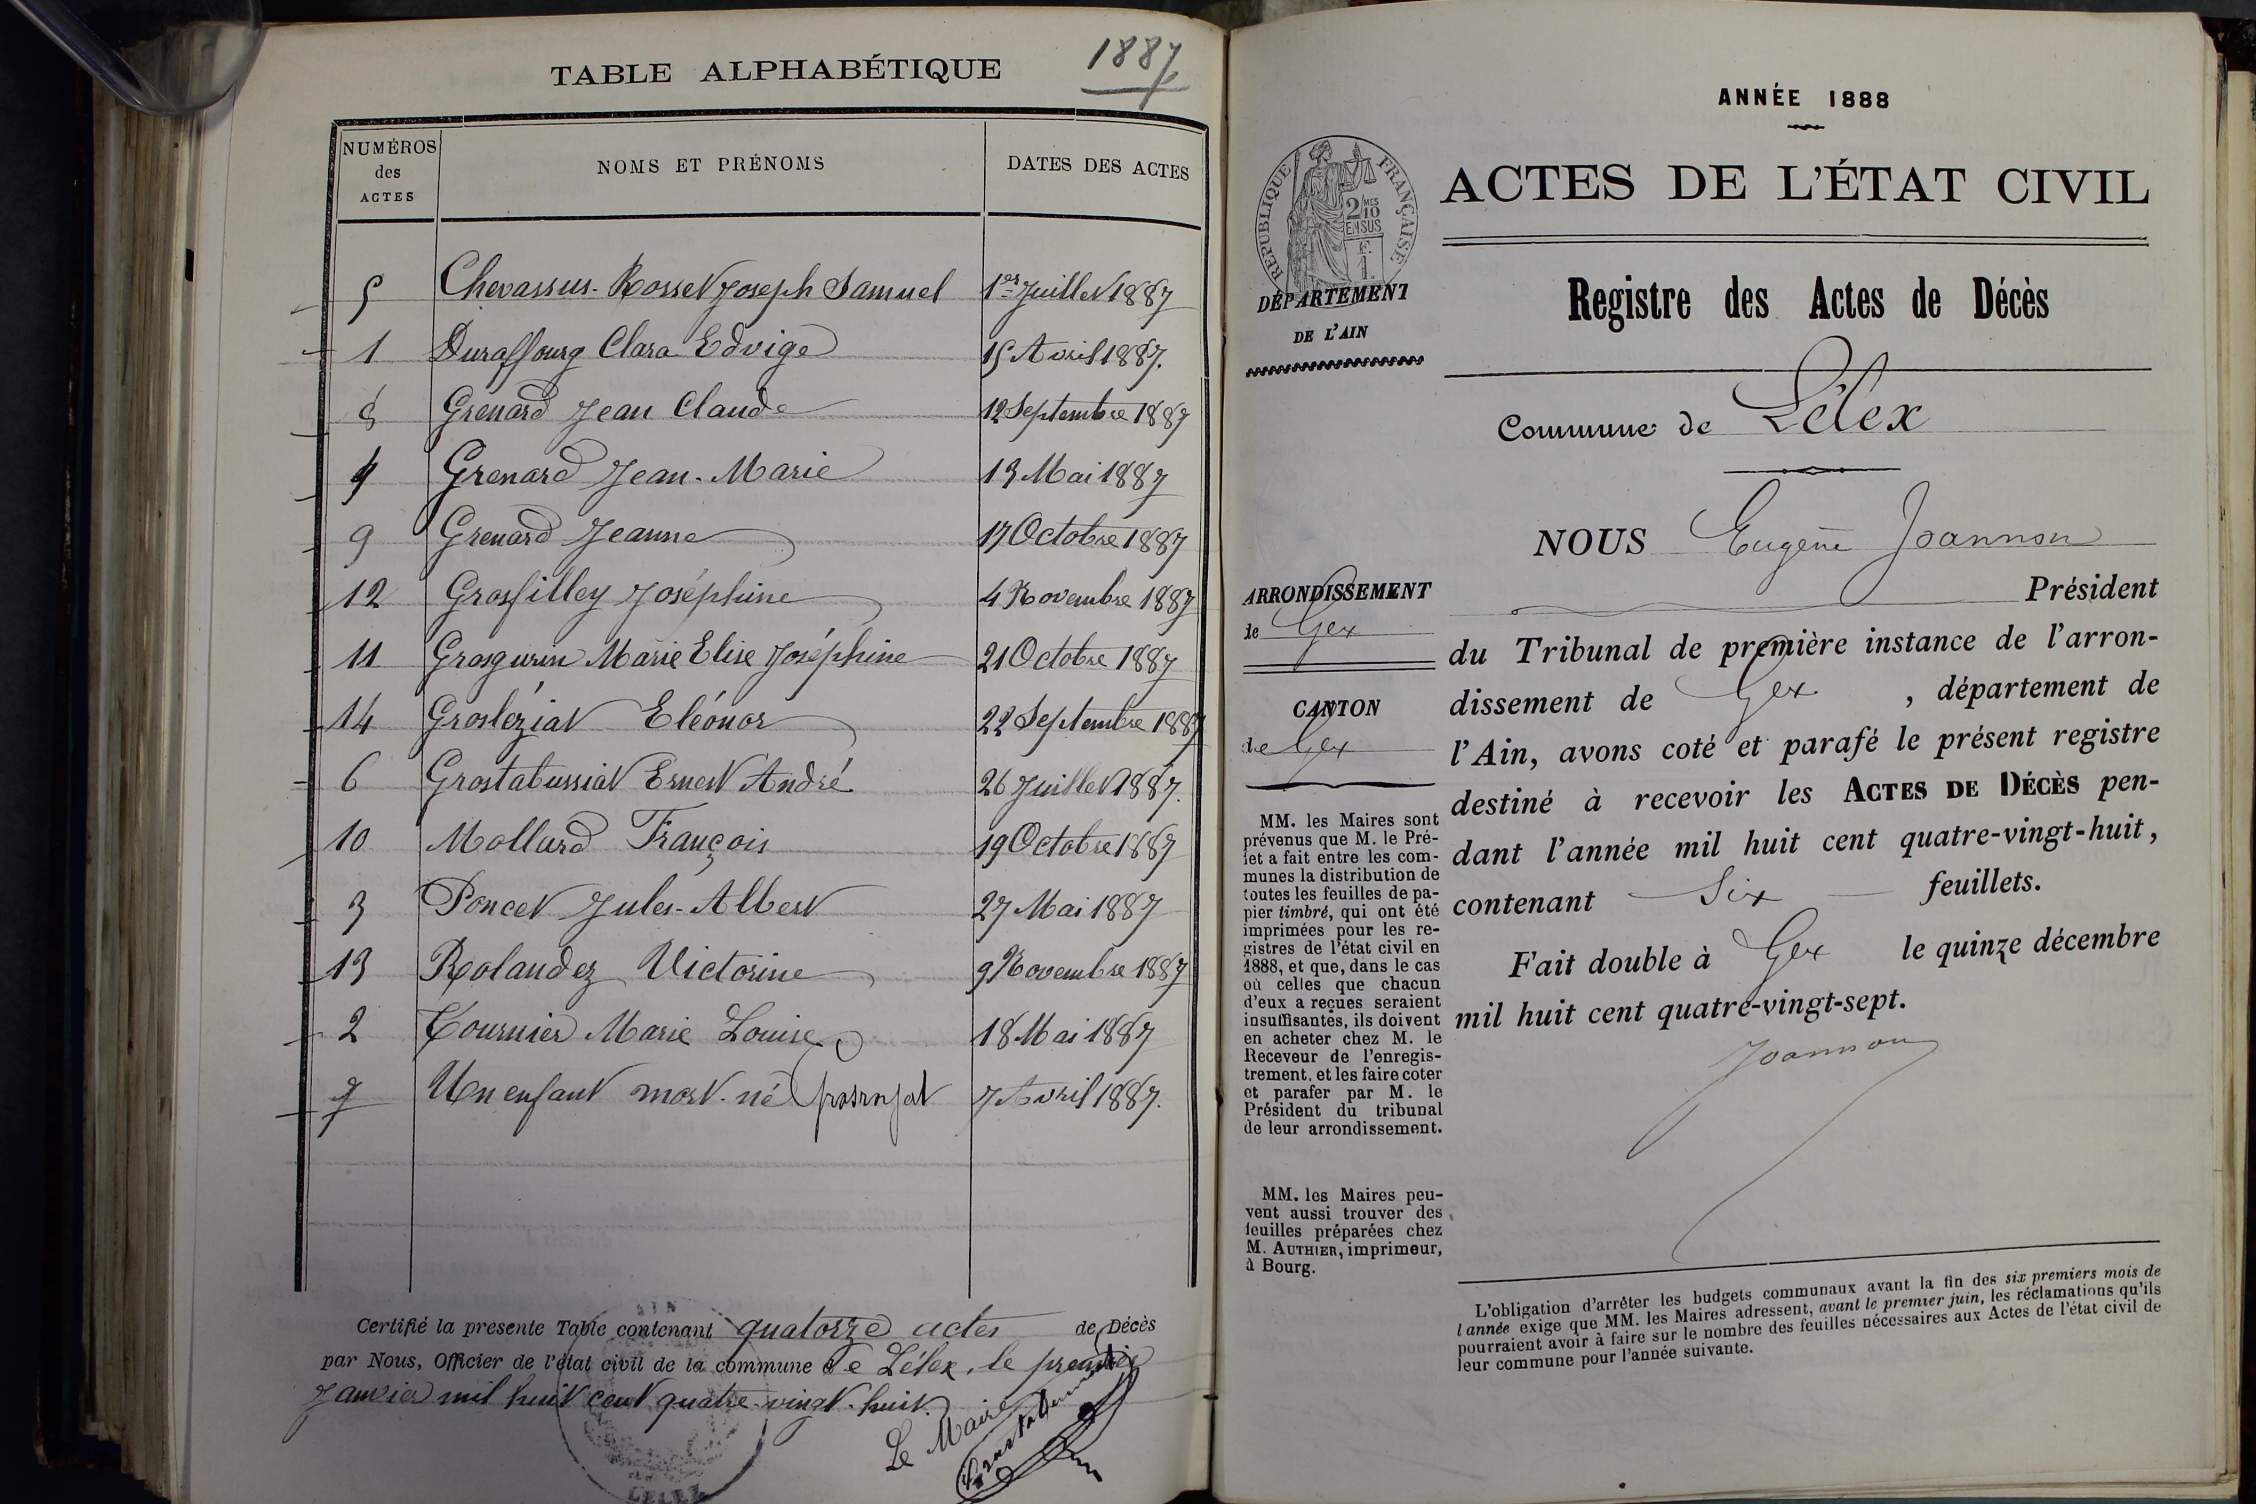 TABLE ALPHABÉTIQUE
1887
NUMÉROS
des
ACTES
NOMS ET PRÉNOMS
DATES DES ACTES
5 Chevassus-Rosset Joseph Samuel 1er Juillet 1887
1 Duraffourg Clara Edvige 15 Avril 1887.
8 Grenard Jean Claude 12 Septembre 1887
4 Grenard Jean-Marie 13 Mai 1887
9 Grenard Jeanne 17 Octobre 1887
12 Grosfilley Joséphine 4 Novembre 1887
11 Grosgurin Marie Elise Joséphine 21 Octobre 1887
14 Grosléziat Eléonor 22 Septembre 1887
6 Grostabussiat Ernest André 26 Juillet 1887.
10 Mollard François 19 Octobre 1887
3 Poncet Jules-Albert 27 Mai 1887
13 Rolandez Victorine 9 Novembre 1887
2 Tournier Marie Louise 18 Mai 1887
7 Un enfant mort-né 7 Avril 1887.
Certifié la presente Table contenant quatorze actes de Décès
par Nous, Officier de l'état civil de la commune de Lélex, le premier
Janvier mil huit cent quatre-vingt-huit.
Le Maire
AIN
LELEX
ANNÉE 1888
RÉPUBLIQUE FRANÇAISE
2/10 MES
EN SUS
F.
1.
ACTES DE L'ÉTAT CIVIL
DÉPARTEMENT
DE L'AIN
Registre des Actes de Décès
Commune de Lélex
ARRONDISSEMENT
de Gex
CANTON
de Gex
MM. les Maires sont
prévenus que M. le Pré-
fet a fait entre les com-
munes la distribution de
toutes les feuilles de pa-
pier timbré, qui ont été
imprimées pour les re-
gistres de l'état civil en
1888, et que, dans le cas
où celles que chacun
d'eux a reçues seraient
insuffisantes, ils doivent
en acheter chez M. le
Receveur de l'enregis-
trement, et les faire coter
et parafer par M. le
Président du tribunal
de leur arrondissement.
MM. les Maires peu-
vent aussi trouver des
feuilles préparées chez
M. AUTHIER, imprimeur,
à Bourg.
NOUS Eugène Joannon
Président
du Tribunal de première instance de l'arron-
dissement de Gex, département de
l'Ain, avons coté et parafé le présent registre
destiné à recevoir les ACTES DE DÉCÈS pen-
dant l'année mil huit cent quatre-vingt-huit,
contenant Six feuillets.
Fait double à Gex le quinze décembre
mil huit cent quatre-vingt-sept.
Joannon
L'obligation d'arrêter les budgets communaux avant la fin des six premiers mois de
l'année exige que MM. les Maires adressent, avant le premier juin, les réclamations qu'ils
pourraient avoir à faire sur le nombre des feuilles nécessaires aux Actes de l'état civil de
leur commune pour l'année suivante.